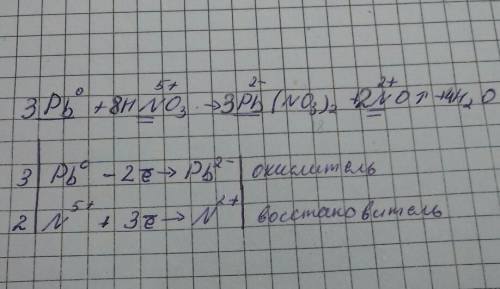 3Pb⁰ + 8HN⁵⁺O₃ → 3Pb²⁻(NO₃)₂ + 2N²⁺O↑ + 4H₂O
3 | Pb⁰ - 2e̅ → Pb²⁻ | окислитель
2 | N⁵⁺ + 3e̅ → N²⁺ | восстановитель